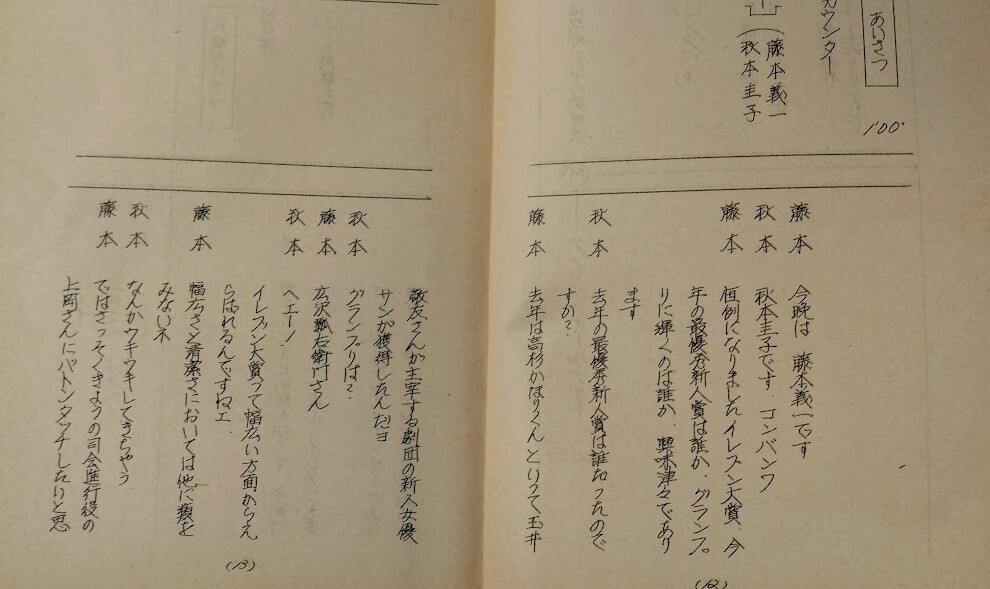 あいさつ
1'00"
カウンター
藤本義一
秋本圭子
藤本 今晩は 藤本義一です
秋本 秋本圭子です コンバンワ
藤本 恒例になりましたイレブン大賞、今
年の最優秀新人賞は誰か、グランプ
リに輝くのは誰か、興味津々であり
ます
秋本 去年の最優秀新人賞は誰だったので
すか?
藤本 去年は高杉かほりくんといって玉井
(12)
敬友さんが主宰する劇団の新人女優
サンが獲得したんだヨ
秋本 グランプリは?
藤本 広沢瓢右衛門さん
秋本 ヘエー!
イレブン大賞って幅広い方面からえ
らばれるんですねエ
藤本 幅広さと清潔さにおいては他に類を
みないネ
秋本 なんかウキウキしてきちゃう
藤本 ではさっそくきょうの司会進行役の
上岡さんにバトンタッチしたいと思
(13)